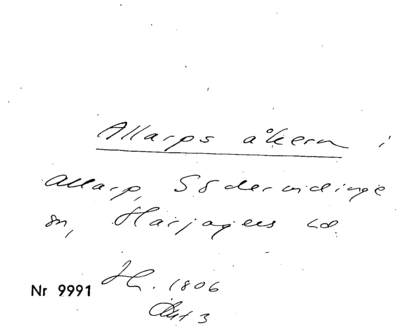 Allarps åkern i
Allarp, Södervidinge
sn, Harjagers hd.
Nr 9991 H. 1806
Akt 3